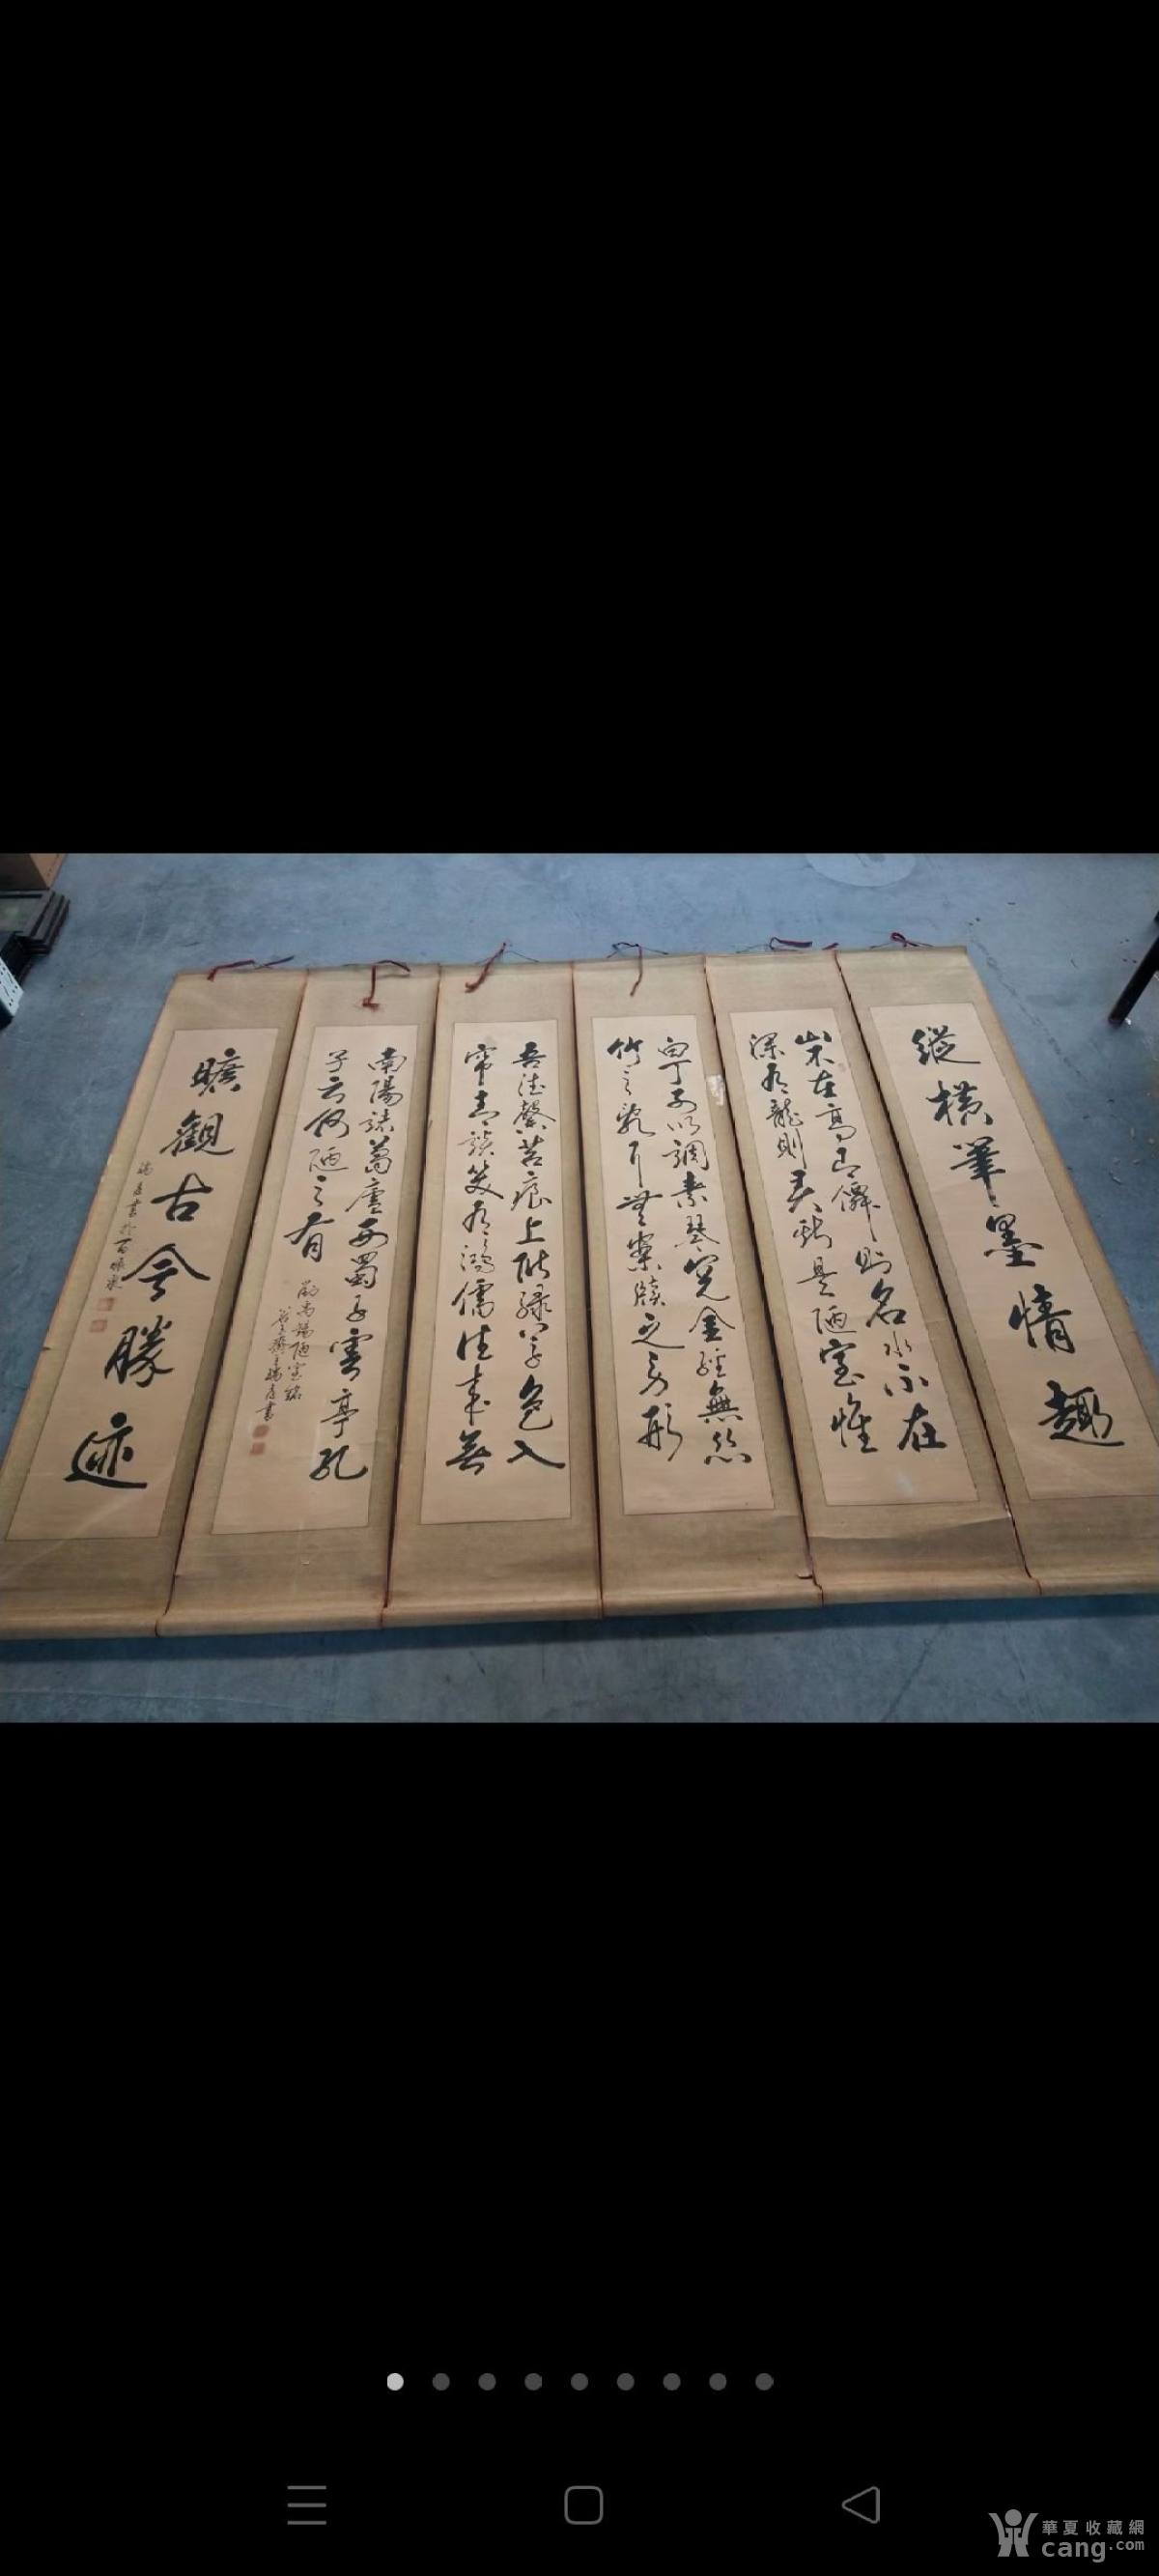 縱橫筆墨情趣
山不在高有僊則名水不在
深有龍則灵斯是陋室惟
吾德馨苔痕上階緑草色入
帘青談笑有鴻儒往来無
白丁可以調素琴閲金經無絲
竹之亂耳無案牘之勞形
南陽諸葛廬西蜀子雲亭孔
子云何陋之有
曠觀古今勝迹
華夏收藏網
cang.com